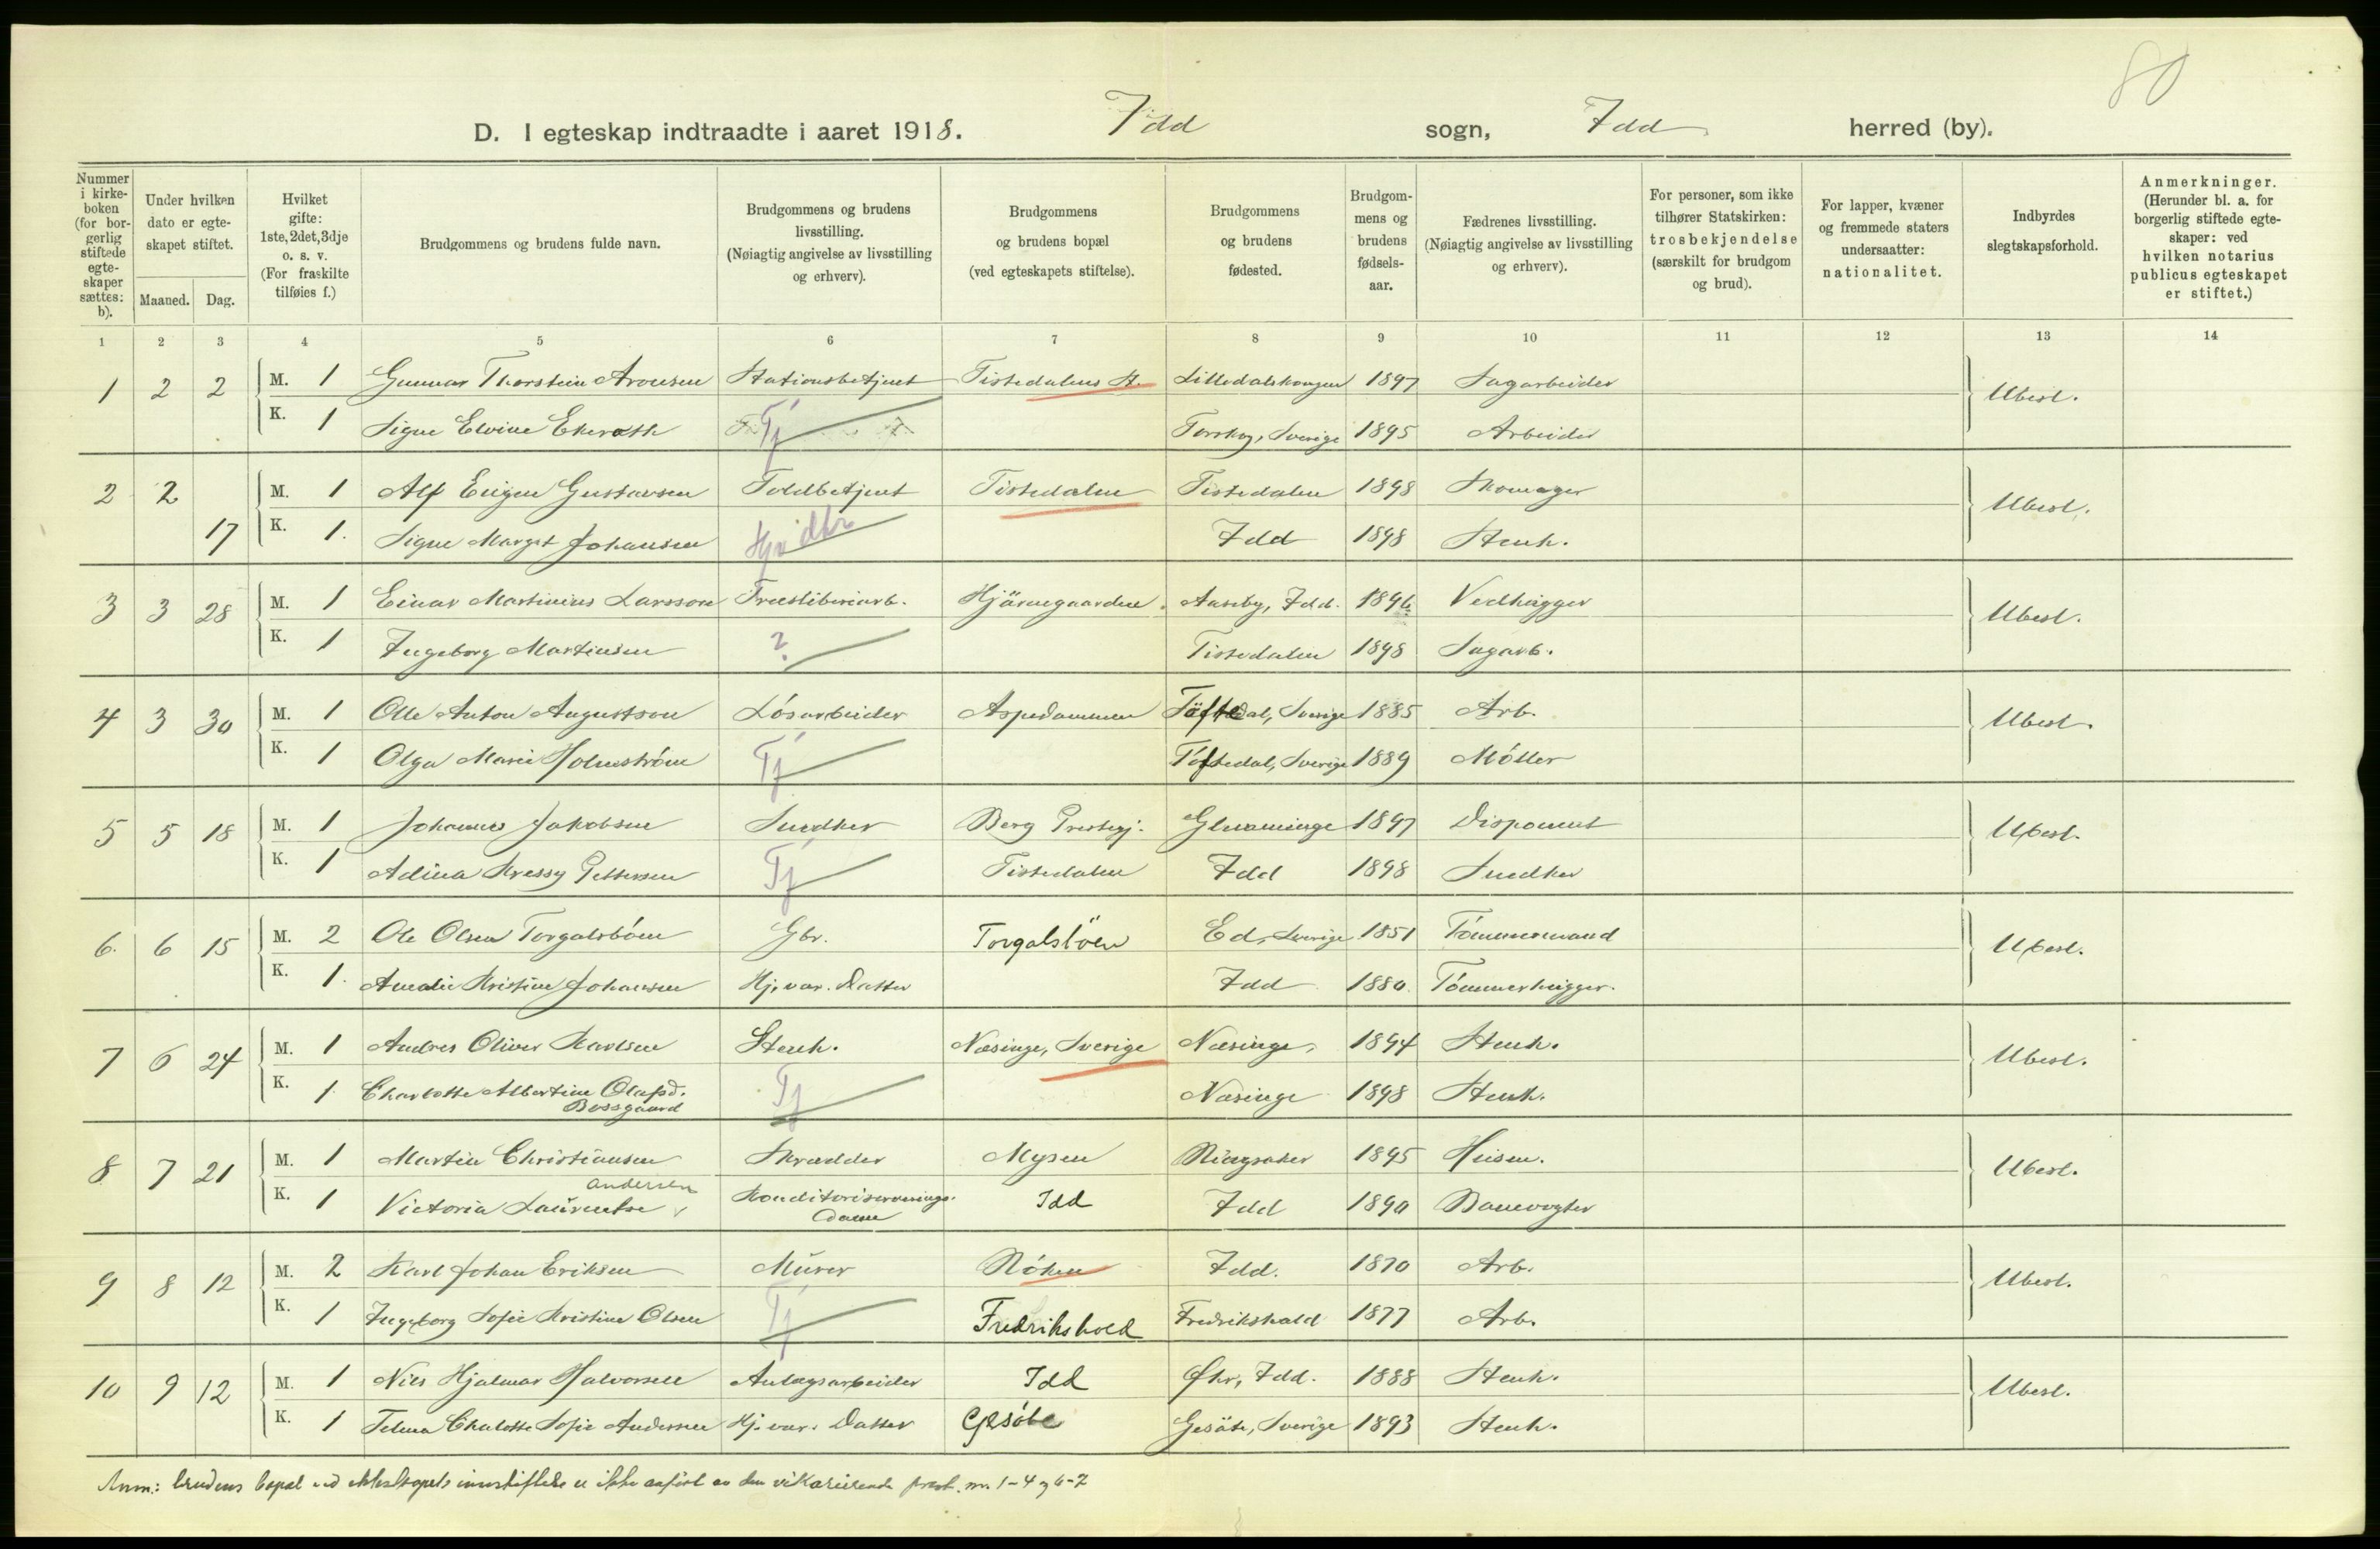 80
D. I egteskap indtraadte i aaret 1918. Idd sogn, Idd herred (by).
Nummer i kirke-boken (for bor-gerlig stiftede egte-skaper sættes: b).
Under hvilken dato er egte-skapet stiftet.
Maaned. Dag.
Hvilket gifte: 1ste, 2det, 3dje o. s. v. (For fraskilte tilføies f.)
Brudgommens og brudens fulde navn.
Brudgommens og brudens livsstilling. (Nøiagtig angivelse av livsstilling og erhverv).
Brudgommens og brudens bopæl (ved egteskapets stiftelse).
Brudgommens og brudens fødested.
Brudgom-mens og brudens fødsels-aar.
Fædrenes livsstilling. (Nøiagtig angivelse av livsstilling og erhverv).
For personer, som ikke tilhører Statskirken: trosbekjendelse (særskilt for brudgom og brud).
For lapper, kvæner og fremmede staters undersaatter: nationalitet.
Indbyrdes slegtskapsforhold.
Anmerkninger. (Herunder bl. a. for borgerlig stiftede egte-skaper: ved hvilken notarius publicus egteskapet er stiftet.)
1 2 3 4 5 6 7 8 9 10 11 12 13 14
1 2 2 M. 1 Gunnar Thorstein Aronsen Stationsbetjent Tistedalens St. 1897 Sagarbeider Ubesl.
K. 1 Signe Elvine Ekeroth Tj Torskog, Sverige 1895 Arbeider
2 2 17 M. 1 Alf Eugen Gustavsen Toldbetjent Tistedalen Tistedalen 1898 Skomager Ubesl.
K. 1. Signe Margit Johansen Idd 1898 Stenh.
3 3 28 M. 1 Einar Martinius Larsson Træsliberiarb. Hjärnegaarden Aaseby, Idd. 1896 Vedhugger Ubesl.
K. 1 Ingeborg Martinsen ? Tistedalen 1898 Sagarb.
4 3 30 M. 1 Olle Anton Augustson Løsarbeider Aspedammen Töftedal, Sverige 1885 Arb. Ubesl.
K. 1 Olga Marie Holmstrøm Tj Töftedal, Sverige 1889 Møller
5 5 18 M. 1 Johannes Jakobsen Snedker Berg Prestegj. Glemminge 1897 Disponent Ubesl.
K. 1 Adina Kressy Pettersen Tj Tistedalen Idd 1898 Snedker
6. 6 15 M. 2 Ole Olsen Torgalsbøen Gbr. Torgalsbøen Ed, Sverige 1851 Tømmermand Ubesl.
K. 1. Amalie Kristine Johansen Hj.vær. Datter Idd 1880 Tømmerhugger.
7 6 24 M. 1 Andres Oliver Karlsen Stenh. Næsinge, Sverige Næsinge, 1894 Stenh. Ubesl.
K. 1 Charlotte Albertine Olafsd. Bossgaard Tj Næsinge 1898 Stenh.
8 7 21 M. 1 Martin Christiansen Skrædder Mysen Ringsaker 1895 Husm. Ubesl.
K. 1 Victoria Laurentse Andersen Konditoriserverings-dame Idd Idd 1890 Banevogter
9 8 12 M. 2 Karl Johan Eriksen Murer Røken Idd. 1870 Arb. Ubesl.
K. 1 Ingeborg Sofie Kristine Olsen Tj Fredrikshald Fredrikshald 1877 Arb.
10 9 12 M. 1 Nils Hjalmar Halvorsen Anlægsarbeider Idd Idd. 1888 Stenh. Ubesl.
K. 1 Telma Chalotte Sofie Andersen Hj.vær. Datter Gesäte Gesäte, Sverige 1893 Stenh.
Anm.: brudens bopæl ved ekteskapets innstiftelse er ikke anført av den vikarierende prest. nr. 1-4 og 6-7